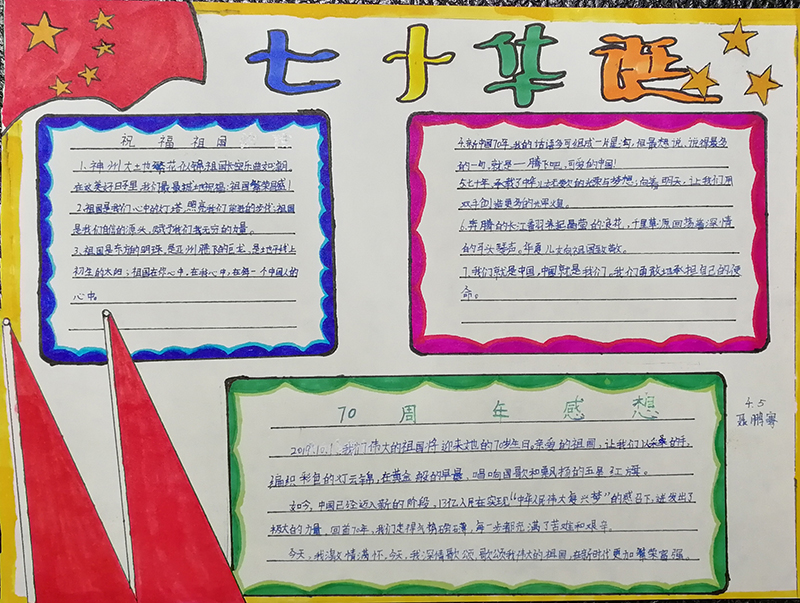 七十华诞
祝福祖国
1、神州大地繁花似锦,祖国长空乐曲如潮。
在这美好日子里,我们最最诚项祝福:祖国繁荣昌盛!
2、祖国是我们心中的灯塔,照亮我们前进的步伐;祖国
是我们自信的源头,赋予我们我无穷的力量。
3、祖国是东方的明珠,是亚洲腾飞的巨龙、是地平线上
初生的太阳:祖国在你心中,在我心中,在每一个中国人的
心中。
4.新中国70年,我的话语多可组成一片星勾,但最想说、说得最多
的一句,就是——腾飞吧,可爱的中国!
5.七十年,承载了中华儿女无数的光荣与梦想;向着明天,让我们用
双手创造更多的光荣
6.奔腾的长江翻卷起晶莹的浪花,千里草原回荡着深情
的马头琴声。华夏儿女向祖国致敬。
7.我们就是中国,中国就是我们。我们勇敢地承担自己的使
命。
70周年感想
2019.10.1,我们伟大的祖国将迎来她的70岁生日。亲爱的祖国,让我们以采桑的手,
编织彩色的灯云锦,在黄金般的早晨,唱响国歌和飘扬的五星红旗。
如今,中国已经迈入新的阶段,13亿人民在实现“中华人民伟大复兴梦”的感召下,迸发出了
极大的力量,回首70年,我们走得气势磅礴,每一步都充满了苦难和艰辛。
今天,我激情满怀,今天,我深情歌颂,歌颂我伟大的祖国,在新时代更加繁荣富强。
4.5
聂鹏骞